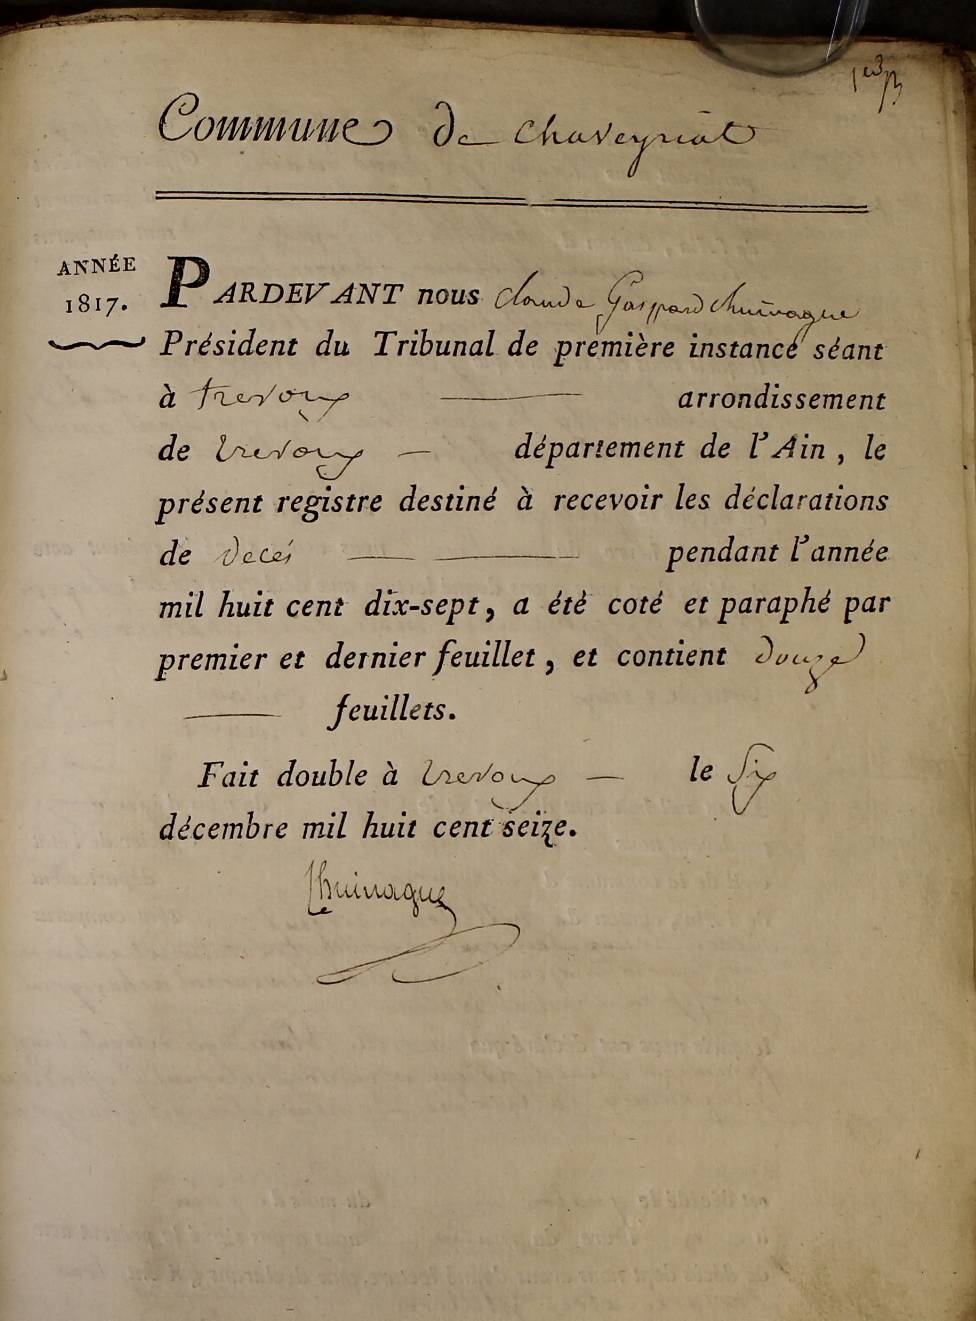 Commune de Chaveyriat
ANNÉE
1817.
PARDEVANT nous Claude Gaspard
Président du Tribunal de première instance séant
à trevoux arrondissement
de trevoux département de l'Ain, le
présent registre destiné à recevoir les déclarations
de Decés pendant l'année
mil huit cent dix-sept, a été coté et paraphé par
premier et dernier feuillet, et contient douze
feuillets.
Fait double à trevoux le Six
décembre mil huit cent seize.